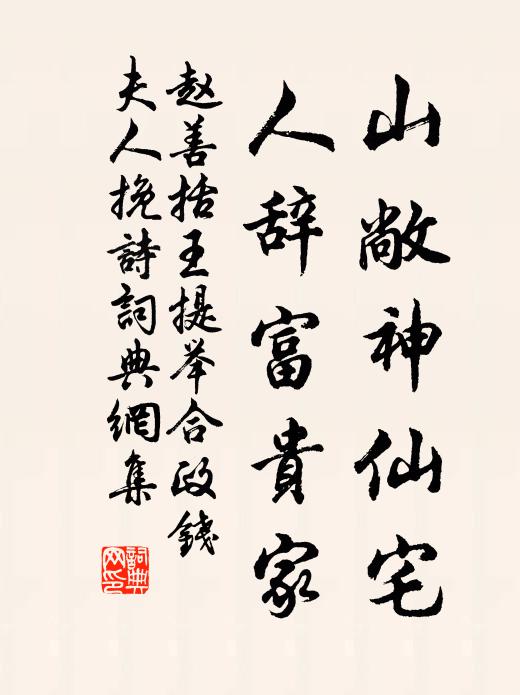 山敞神仙宅
人辞富貴家
赵善括王提举合政錢
夫人挽詩詞典網集
詞典网印